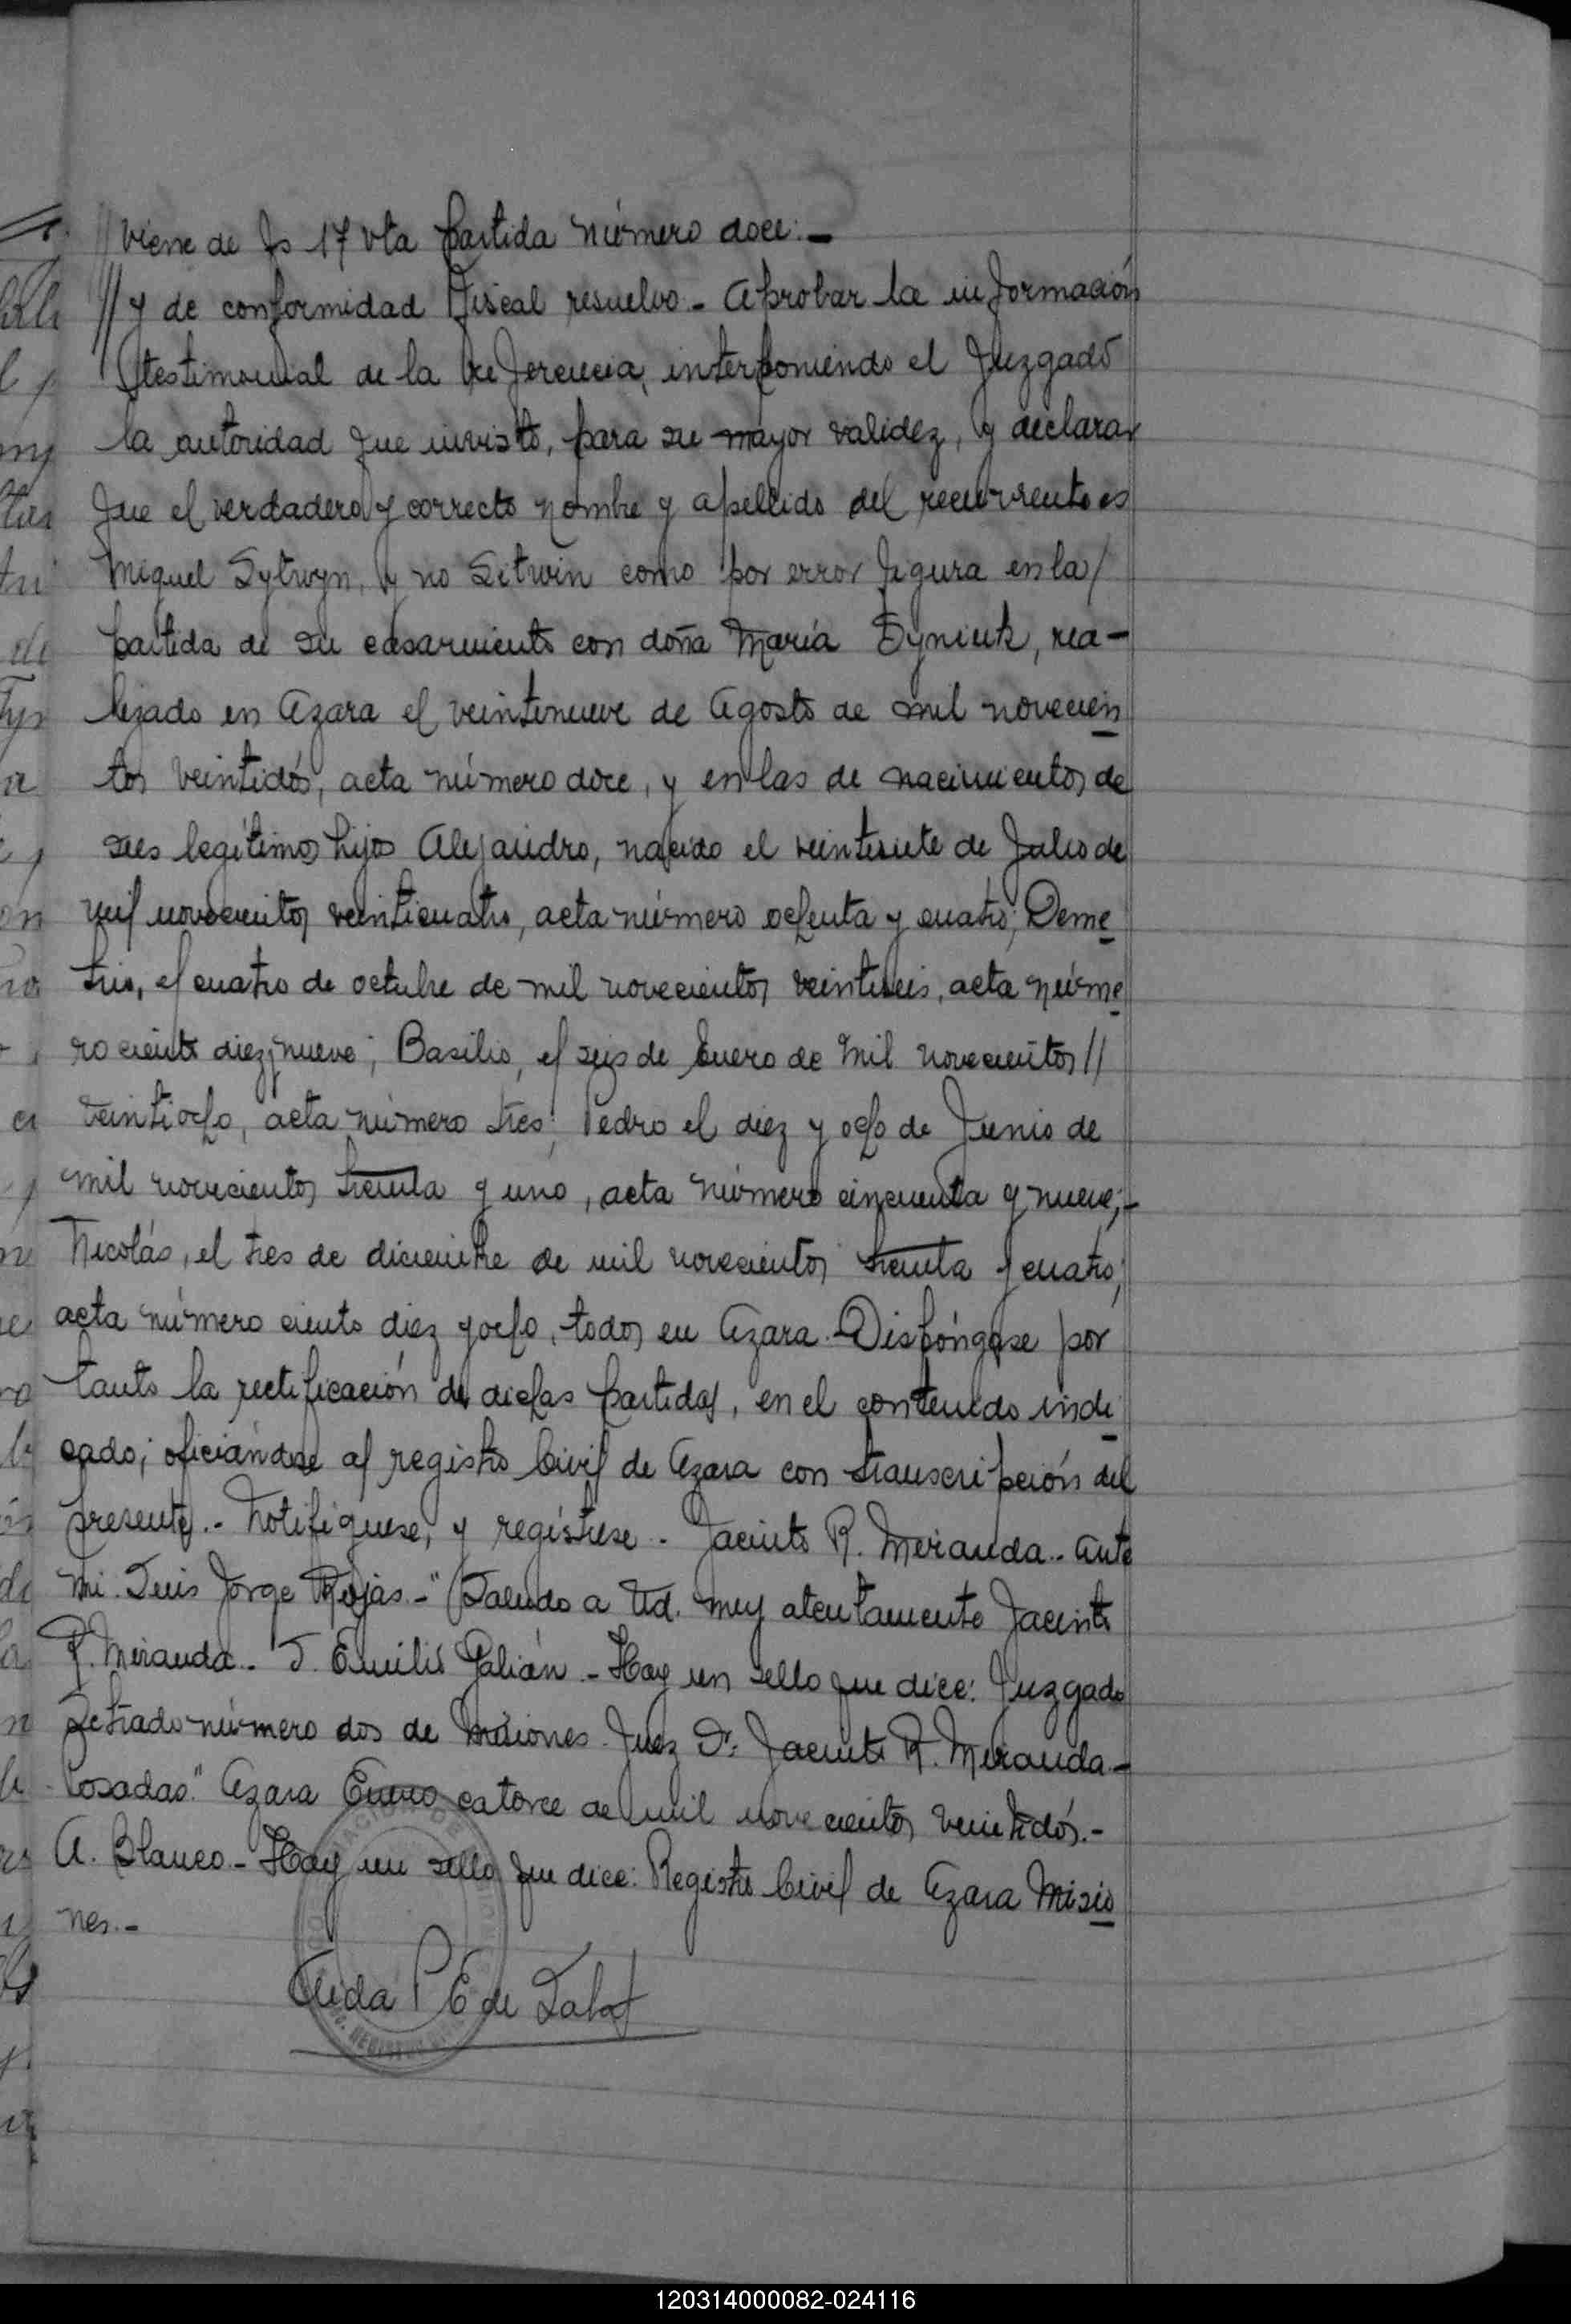 // viene de fs 17 vta partida número doce:-
// y de conformidad Fiscal resuelvo.- Aprobar la información
testimonial de la referencia, interponiendo el Juzgado
la autoridad que invisto, para su mayor validez, y declarar
que el verdadero y correcto nombre y apellido del recurrente es
Miguel Sytwyn, y no Sitwin como por error figura en la/
partida de su casamiento con doña María Tyniuk, rea-
lizado en Azara el veintinueve de Agosto de mil novecien
tos veintidós, acta número doce, y en las de nacimientos de
sus legítimos hijos Alejandro, nacido el veintisiete de Julio de
mil novecientos veinticuatro, acta número ochenta y cuatro; Deme
trio, el cuatro de octubre de mil novecientos veintiseis, acta núme
ro ciento diez y nueve; Basilio, el seis de Enero de mil novecientos //
veintiocho, acta número tres; Pedro el diez y ocho de Junio de
mil novecientos treinta y uno, acta número cincuenta y nueve;-
Nicolás, el tres de diciembre de mil novecientos treinta y cuatro;
acta número ciento diez y ocho, todos en Azara.- Dispóngase por
tanto la rectificación de dichas partidas, en el contenido indi
cado; oficiándose al registro Civil de Azara con transcripción del
presente.- Notifíquese, y regístrese.- Jacinto R. Miranda.- Ante
mi. Luis Jorge Rojas.-" Saludo a Ud. muy atentamente Jacinto
R. Miranda.- J. Emilio Galián.- Hay un sello que dice: Juzgado
Letrado número dos de Misiones. Juez Dr. Jacinto R. Miranda-
Posadas." Azara Enero catorce de mil novecientos veintidós.-
A. Blanco.- Hay un sello que dice: Registro Civil de Azara Misio
nes.-
Aida P E de
120314000082-024116